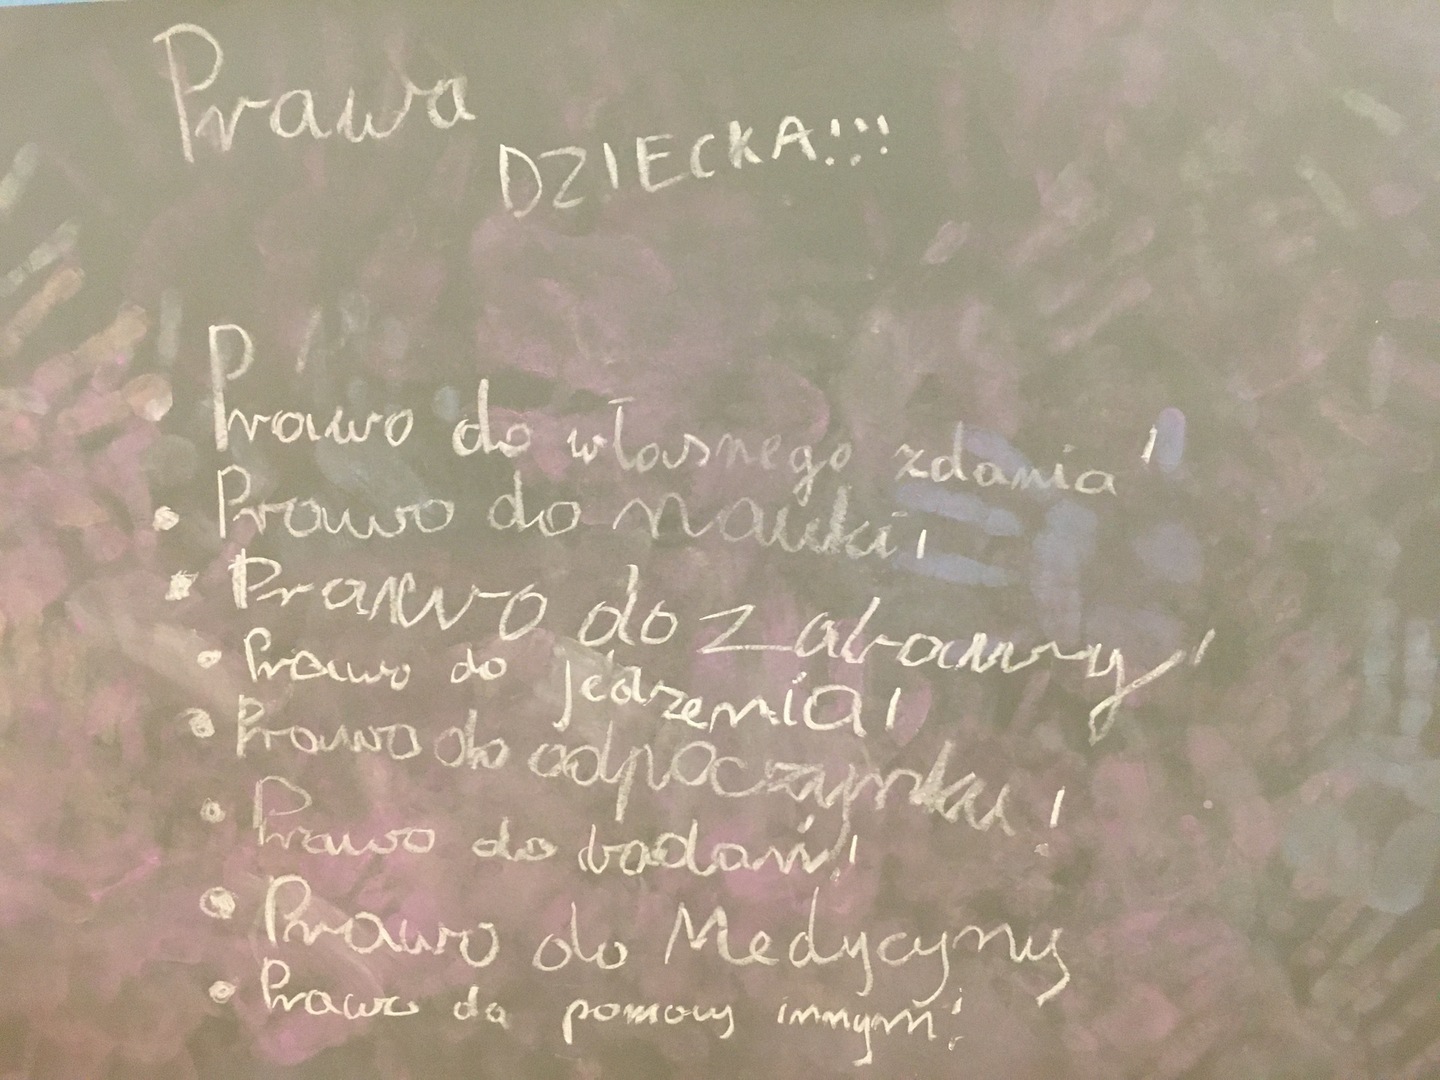 Prawa
DZIECKA!!!
Prawo do własnego zdania!
• Prawo do nauki!
• Prawo do Zabawy!
• Prawo do jedzenia!
• Prawo do odpoczynku!
• Prawo do badań!
• Prawo do Medycyny
• Prawo do pomocy innym!